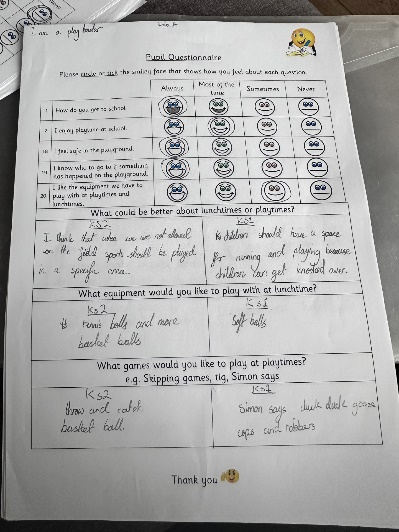 i am a play leader
Pupil Questionnaire
Please circle or tick the smiley face that shows how you feel about each question.
Always Most of the time Sometimes Never
1 How do you get to school
2 I enjoy playtime at school.
18 I feel safe in the playground.
19 I know who to go to if something has happened on the playground.
20 I like the equipment we have to play with at playtimes and lunchtimes.
What could be better about lunchtimes or playtimes?
KS2
I think that when we are not allowed
on the field sports should be played
in a specific area.
KS1
children should have a space
for running and playing because
children can get knocked over.
What equipment would you like to play with at lunchtime?
KS2
tennis balls and more
basket balls
KS1
Soft balls
What games would you like to play at playtimes?
e.g. Skipping games, tig, Simon says
KS2
throw and catch.
basket ball.
KS1
Simon says duck duck goose
cops and robbers
Thank you